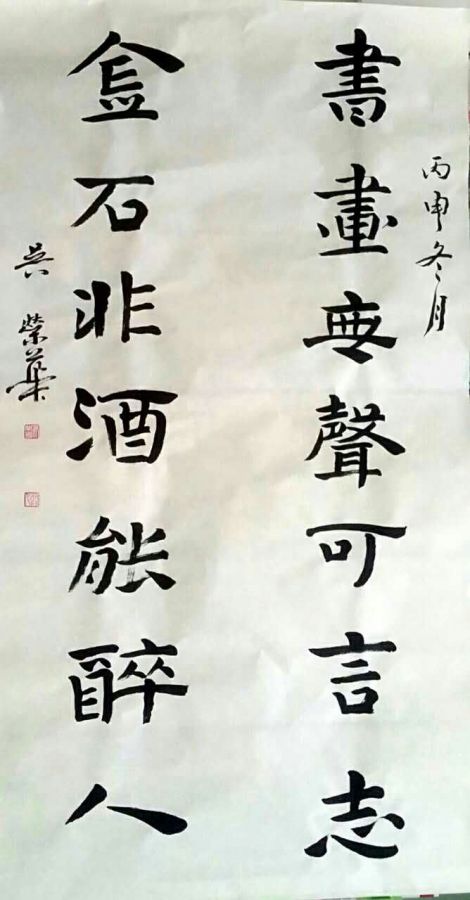 丙申冬月
書畫無聲可言志
金石非酒能醉人